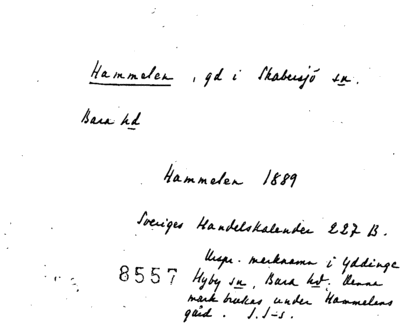 Hammelen, gd i Skabersjö sn.
Bara hd
Hammelen 1889
Sveriges Handelskalender 227 B.
Urspr. marknamn i Yddinge
8557 Hyby sn, Bara hd. Denna
mark brukas under Hammelens
gård. S.I-s.